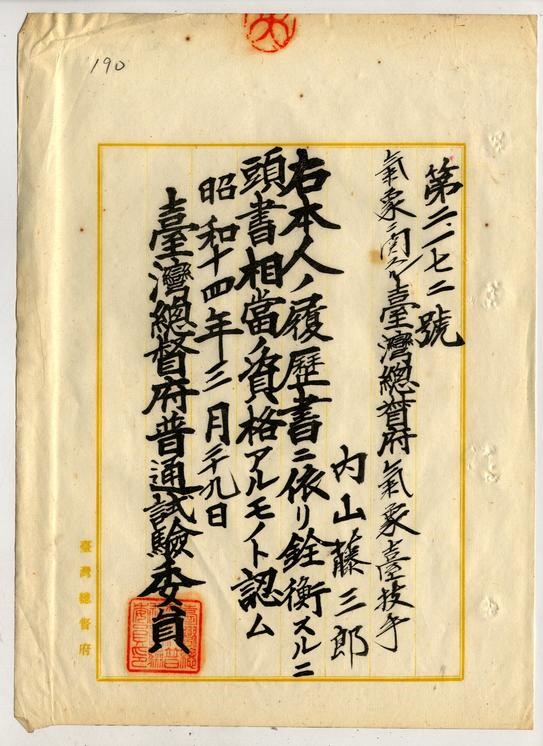 190
第二一七二號
氣象ニ關スル臺灣總督府氣象臺技手
内山藤三郎
右本人ノ履歷書ニ依リ銓衡スルニ
頭書相當ノ資格アルモノト認ム
昭和十四年三月二十九日
臺灣總督府普通試驗委員
臺灣總督府